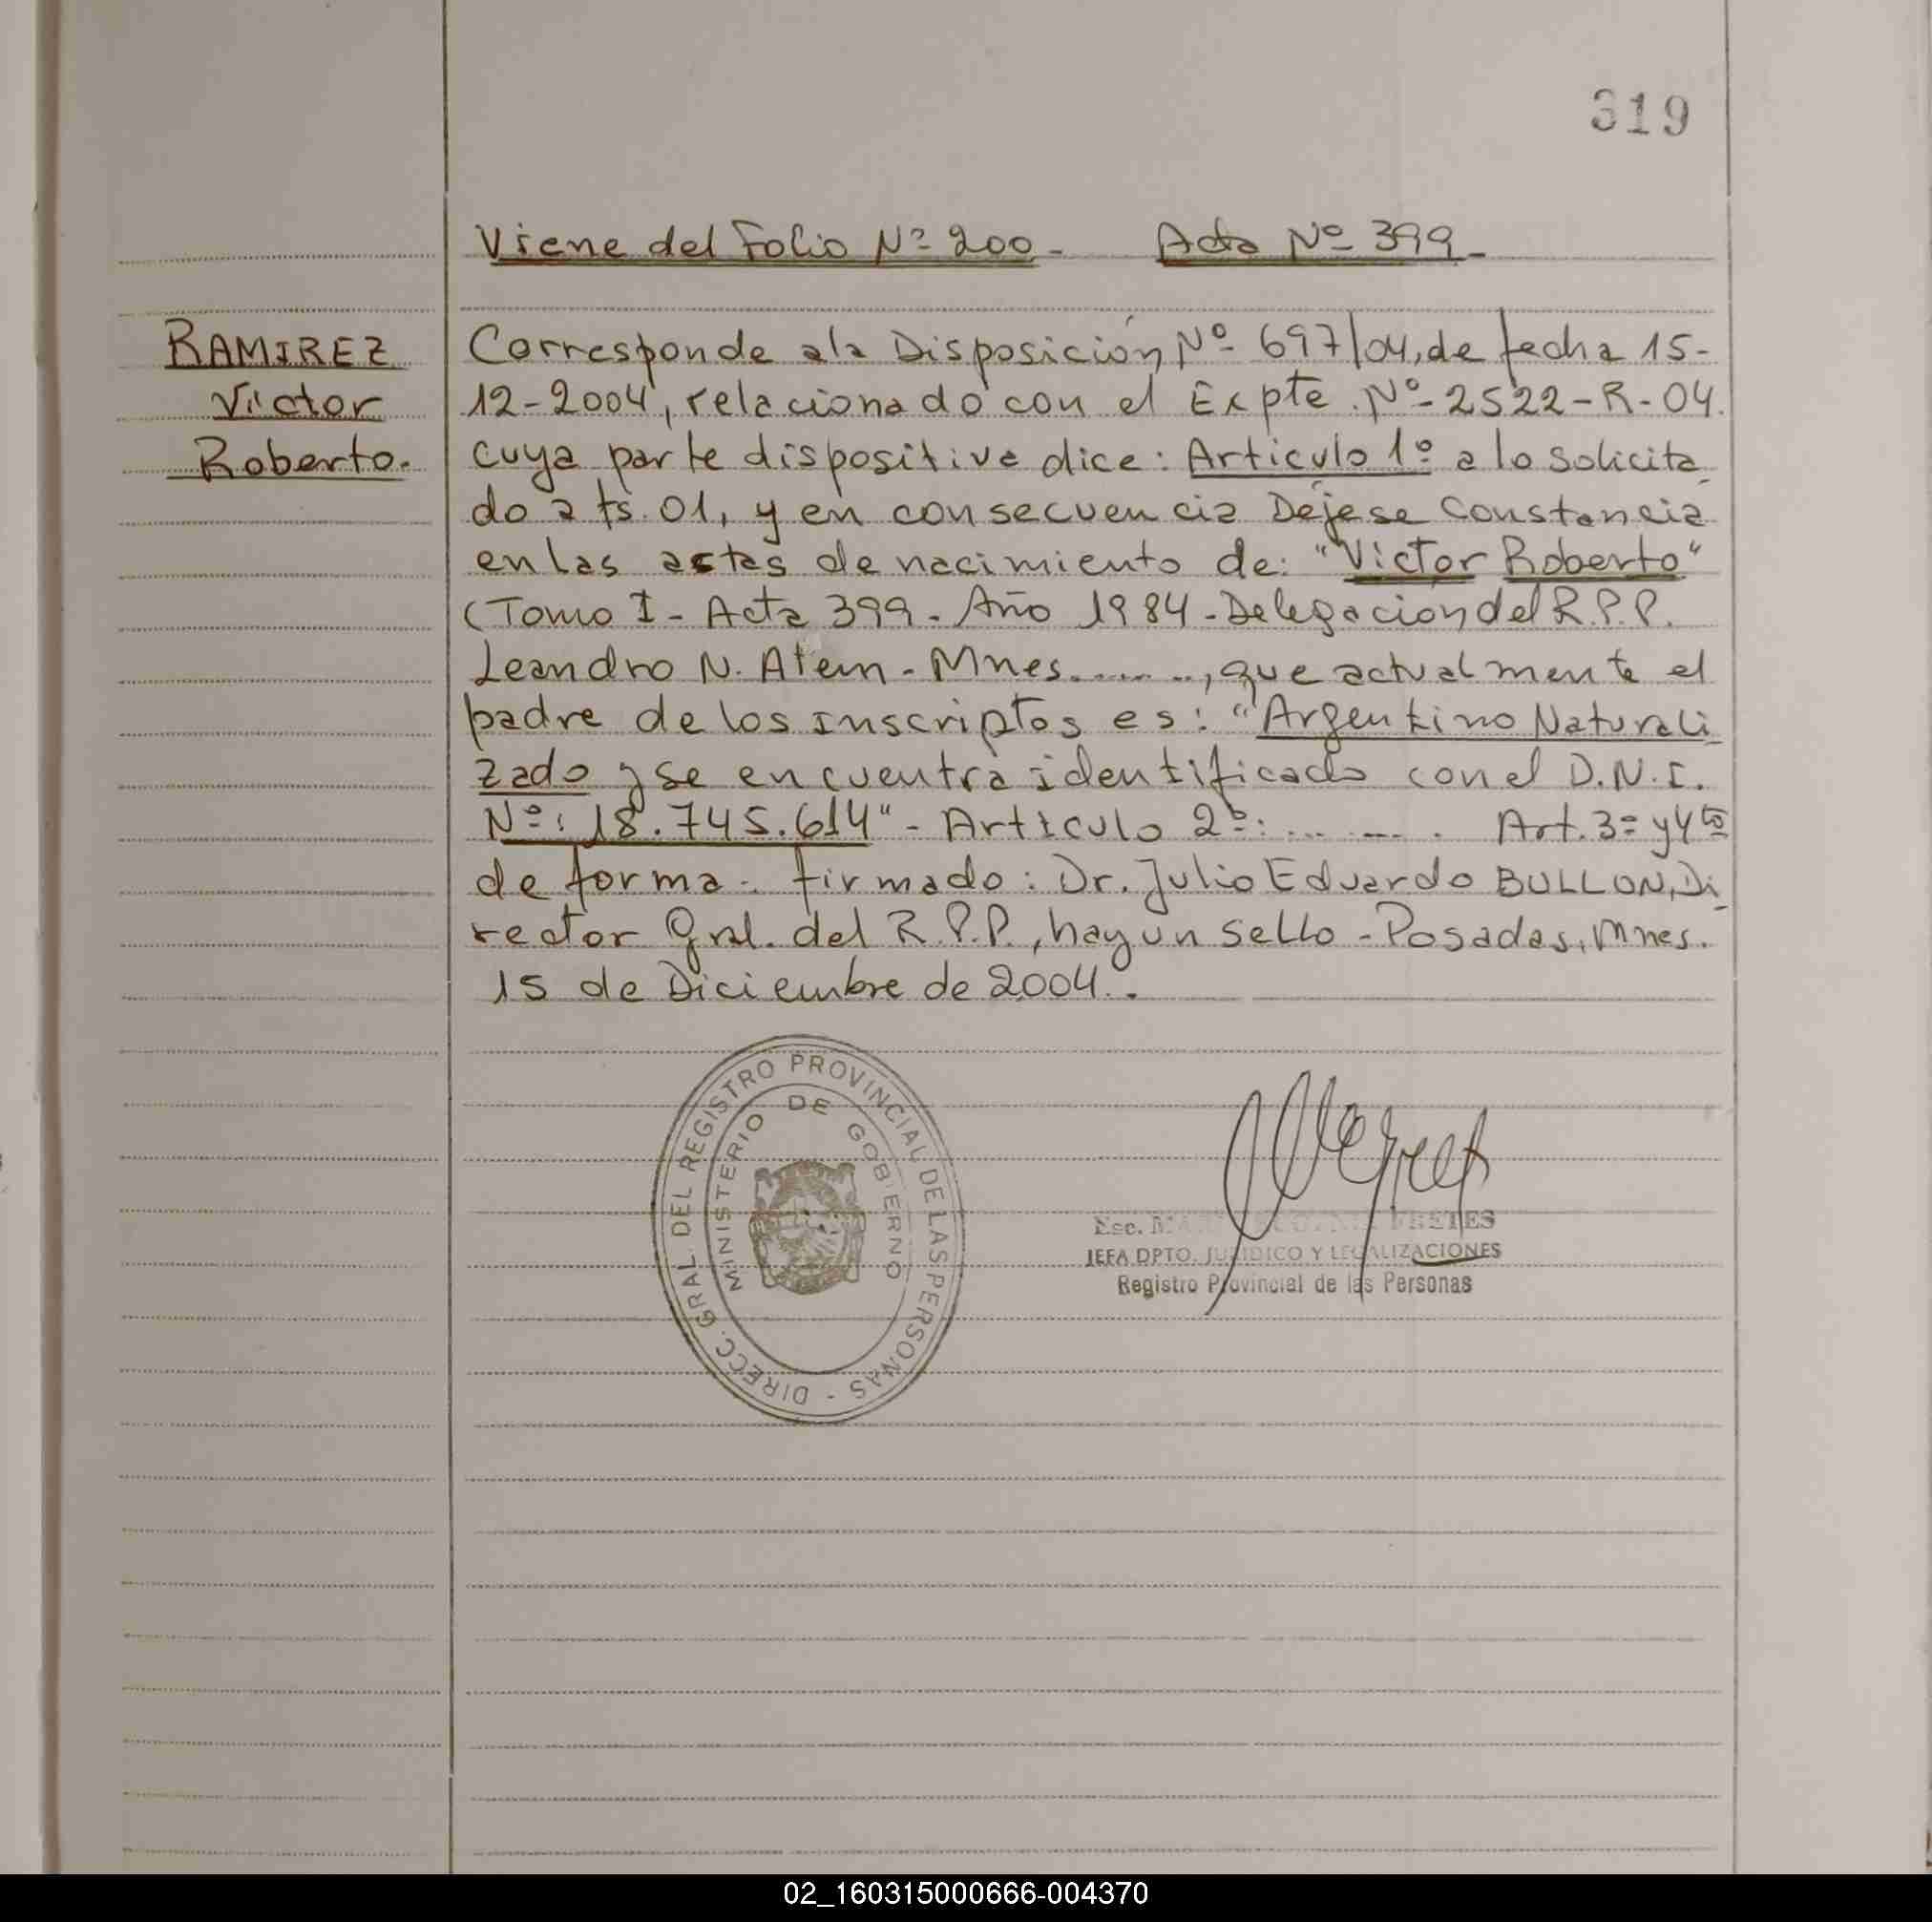 319
Viene del Folio Nº 200- Acta Nº 399-
RAMIREZ
Victor
Roberto.
Corresponde a la Disposición, Nº 697/04, de fecha 15-
12-2004, relacionado con el Expte. Nº 2522-R-04.
cuya parte dispositiva dice: Articulo 1º a lo solicita
do a fs. 01, y en consecuencia Déjese Constancia
en las actas de nacimiento de: "Victor Roberto"
(Tomo I - Acta 399. Año 1984 - Delegación del R.P.P.
Leandro N. Alem - Mnes........, que actualmente el
padre de los inscriptos es: "Argentino Naturali
zado y se encuentra identificado con el D.N.I.
Nº: 18.745.614" - Articulo 2º: ... ... . Art. 3º y 4to
de forma. firmado: Dr. Julio Eduardo BULLON, Di
rector Gral. del R.P.P., hay un sello - Posadas, Mnes.
15 de Diciembre de 2004..
DIRECC. GRAL. DEL REGISTRO PROVINCIAL DE LAS PERSONAS -
MINISTERIO DE GOBIERNO
Esc. FRETES
JEFA DPTO. JURIDICO Y LEGALIZACIONES
Registro Provincial de las Personas
02_160315000666-004370